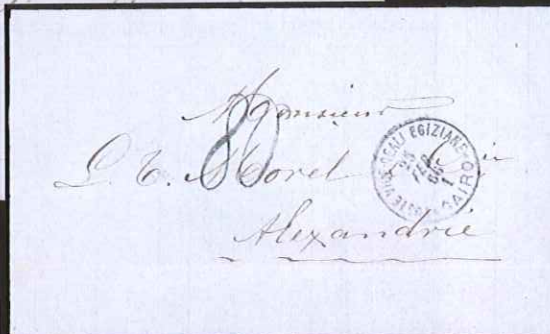 Monsieur
80
L. C. Morel
Alexandrie
POSTE VICE-REALI EGIZIANE
CAIRO
25
FEB
66
1